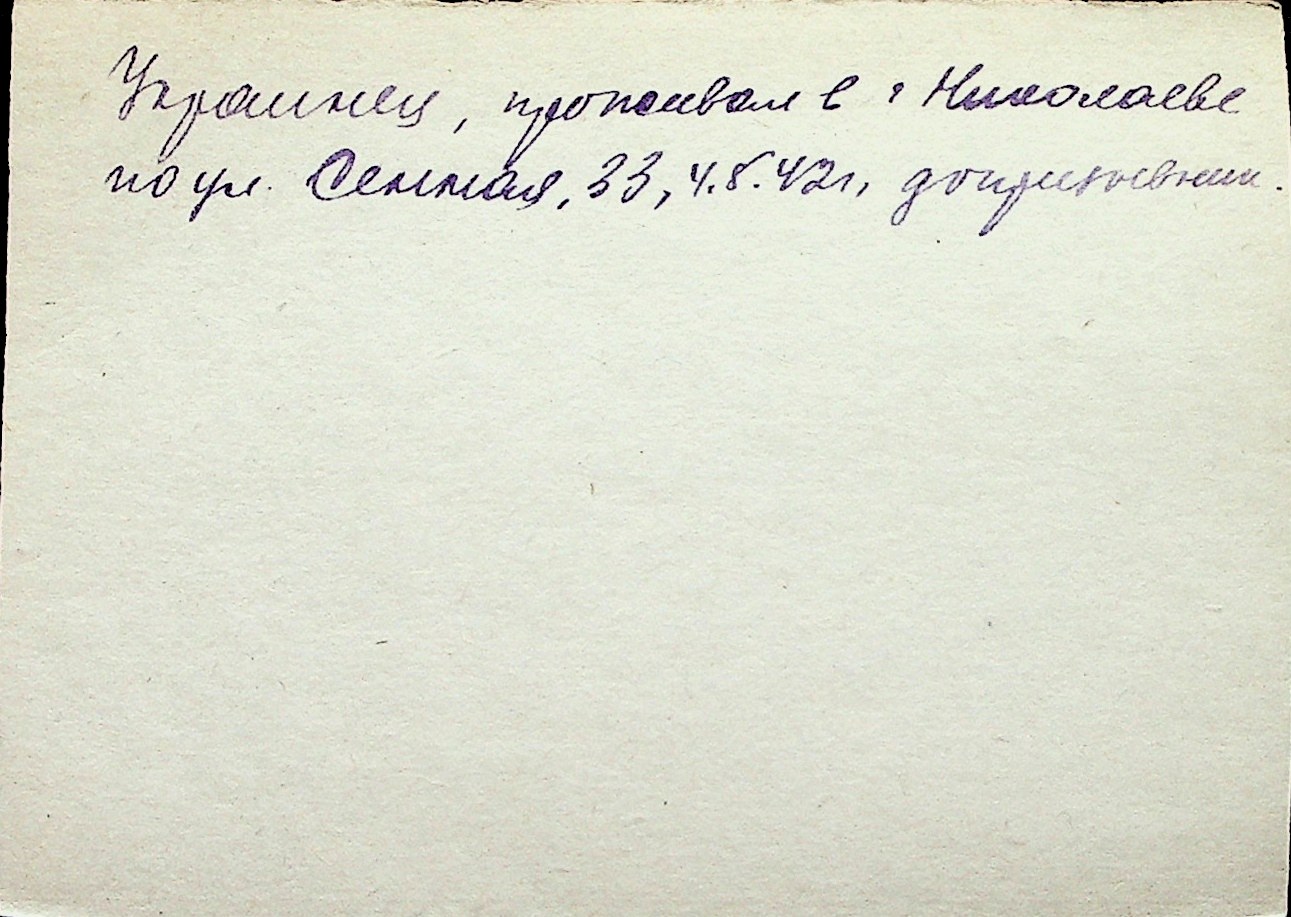 Украинец, проживал в г Николаеве
по ул. Сенная, 33, 4.8.42г, допризывник.